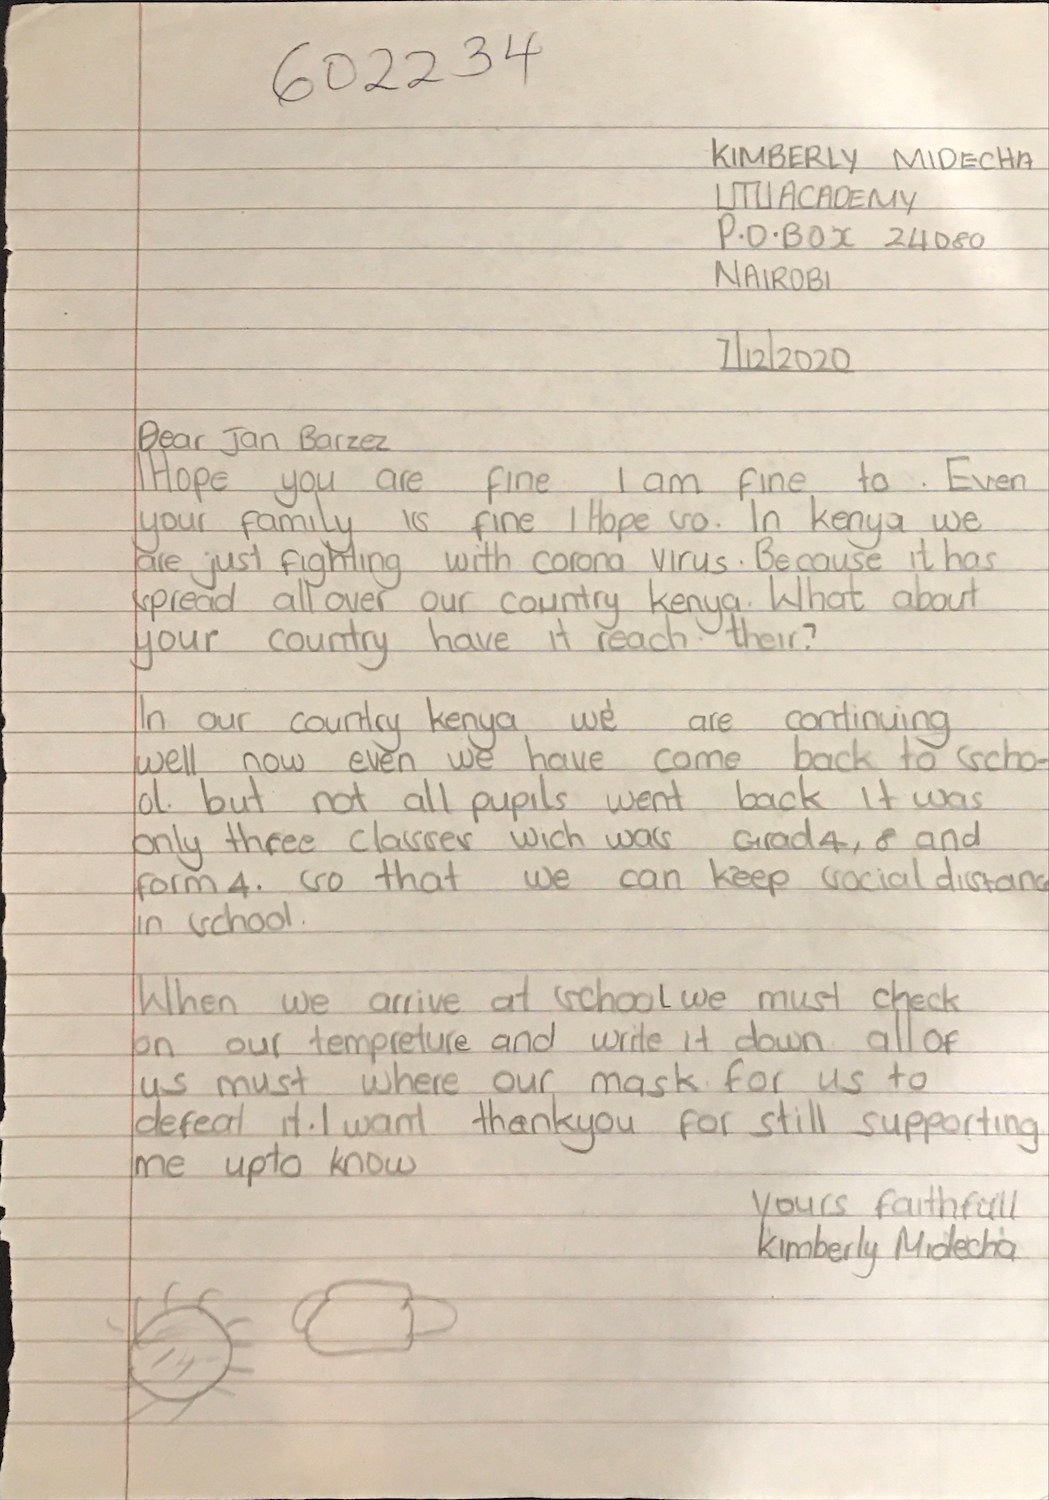 602234
KIMBERLY MIDECHA
UTU ACADEMY
P.O.BOX 24080
NAIROBI
7/12/2020
Dear Jan Barzez
I Hope you are fine I am fine to. Even
your family is fine I Hope so. In kenya we
are just fighting with corona virus. Because it has
spread all over our country kenya. What about
your country have it reach their?
In our country kenya we are continuing
well now even we have come back to scho-
ol. but not all pupils went back It was
only three classes wich was Grad 4, 8 and
form 4. so that we can keep social distanc
in school.
When we arrive at school we must check
on our tempreture and write it down. all of
us must where our mask for us to
defeat it. I want thankyou for still supporting
me upto know
Yours faithfull
Kimberly Midecha